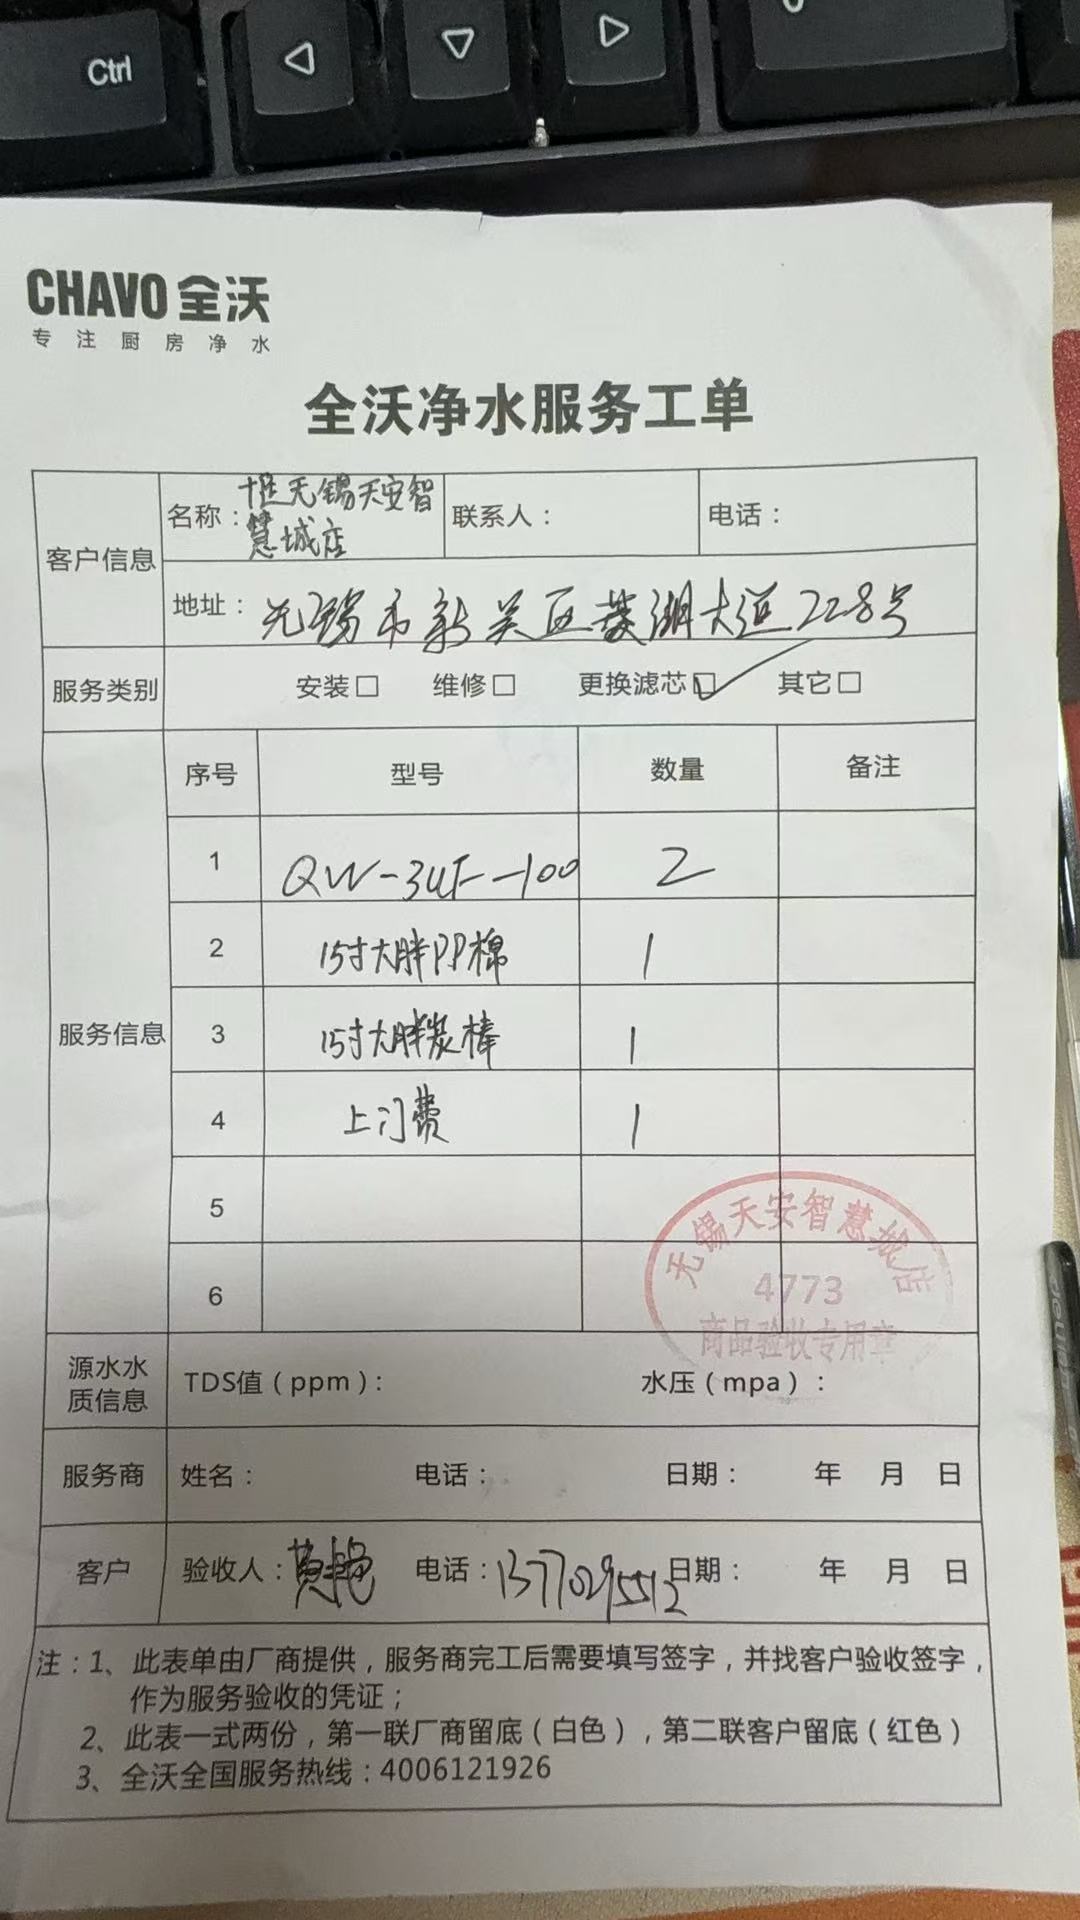 Ctrl
CHAVO 全沃
专注厨房净水
全沃净水服务工单
客户信息
名称：
无锡天安智
慧城店
联系人：
电话：
地址：无锡市新吴区菱湖大道228号
服务类别
安装□ 维修□ 更换滤芯□ 其它□
服务信息
序号 型号 数量 备注
1 QW-3UF-100 2
2 15寸大胖PP棉 1
3 15寸大胖炭棒 1
4 上门费 1
5
6
无锡天安智慧城店
4773
商品验收专用章
源水水
质信息
TDS值（ppm）： 水压（mpa）：
服务商 姓名： 电话： 日期： 年 月 日
客户 验收人：黄艳 电话：13770295512 日期： 年 月 日
注：1、此表单由厂商提供，服务商完工后需要填写签字，并找客户验收签字，
作为服务验收的凭证；
2、此表一式两份，第一联厂商留底（白色），第二联客户留底（红色）
3、全沃全国服务热线：4006121926